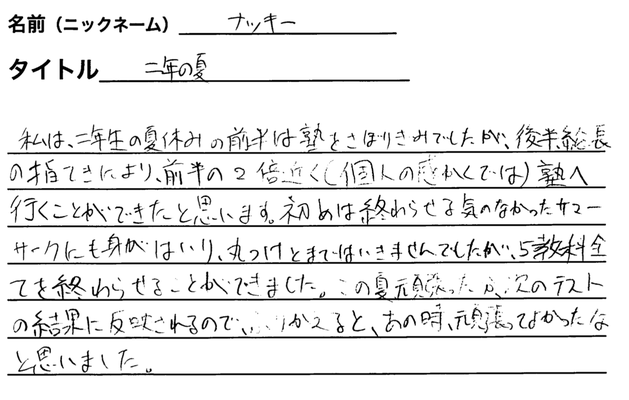 名前（ニックネーム） ナッキー
タイトル 二年の夏
私は、二年生の夏休みの前半は塾をさぼりぎみでしたが、後半総長
の指てきにより、前半の2倍近く（個人の感かくでは）塾へ
行くことができたと思います。初めは終わらせる気のなかったサマー
サークにも身がはいり、丸つけとまではいきませんでしたが、5教科全
てを終わらせることができました。この夏頑張った分、次のテスト
の結果に反映されるので、ふりかえると、あの時、頑張ってよかったな
と思いました。